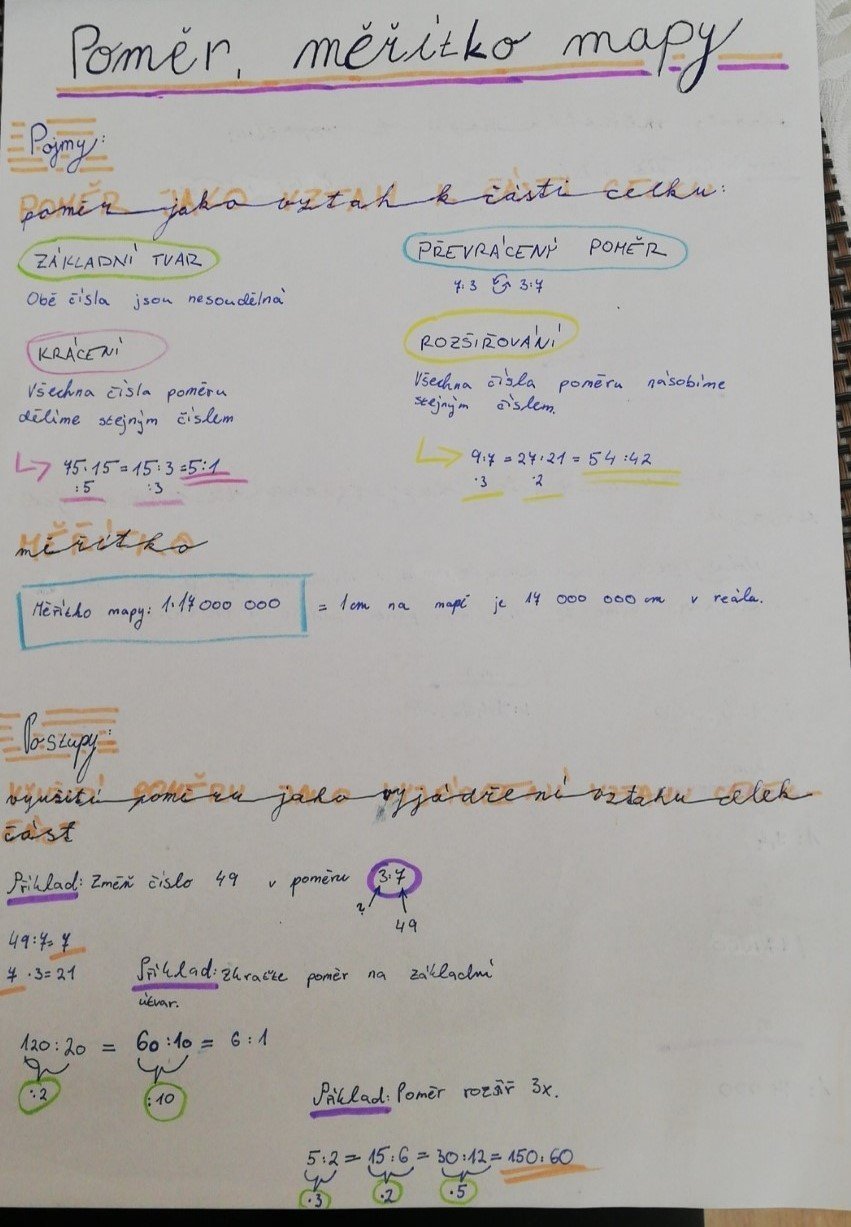 Poměr, měřítko mapy
Pojmy:
poměr jako vztah k části celku:
ZÁKLADNÍ TVAR
Obě čísla jsou nesoudělná
PŘEVRÁCENÝ POMĚR
7:3 3:7
KRÁCENÍ
Všechna čísla poměru
dělíme stejným číslem
75:15=15:3=5:1
:5 :3
ROZŠIŘOVÁNÍ
Všechna čísla poměru násobíme
stejným číslem.
9:7=27:21=54:42
·3 ·2
měřítko
Měřítko mapy: 1:17 000 000 = 1cm na mapě je 17 000 000 cm v reálu.
Postupy:
využití poměru jako vyjádření vztahu celek
část
Příklad: Změň číslo 49 v poměru 3:7
? 49
49:7=7
7·3=21
Příklad: Zkraťte poměr na základní
útvar.
120:20 = 60:10 = 6:1
:2 :10
Příklad: Poměr rozšiř 3x.
5:2=15:6=30:12=150:60
·3 ·2 ·5